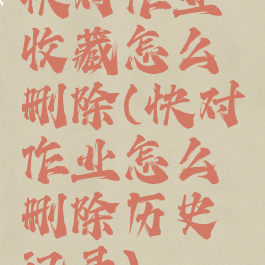 快对作业
收藏怎么
删除(快对
作业怎么
删除历史
记录)